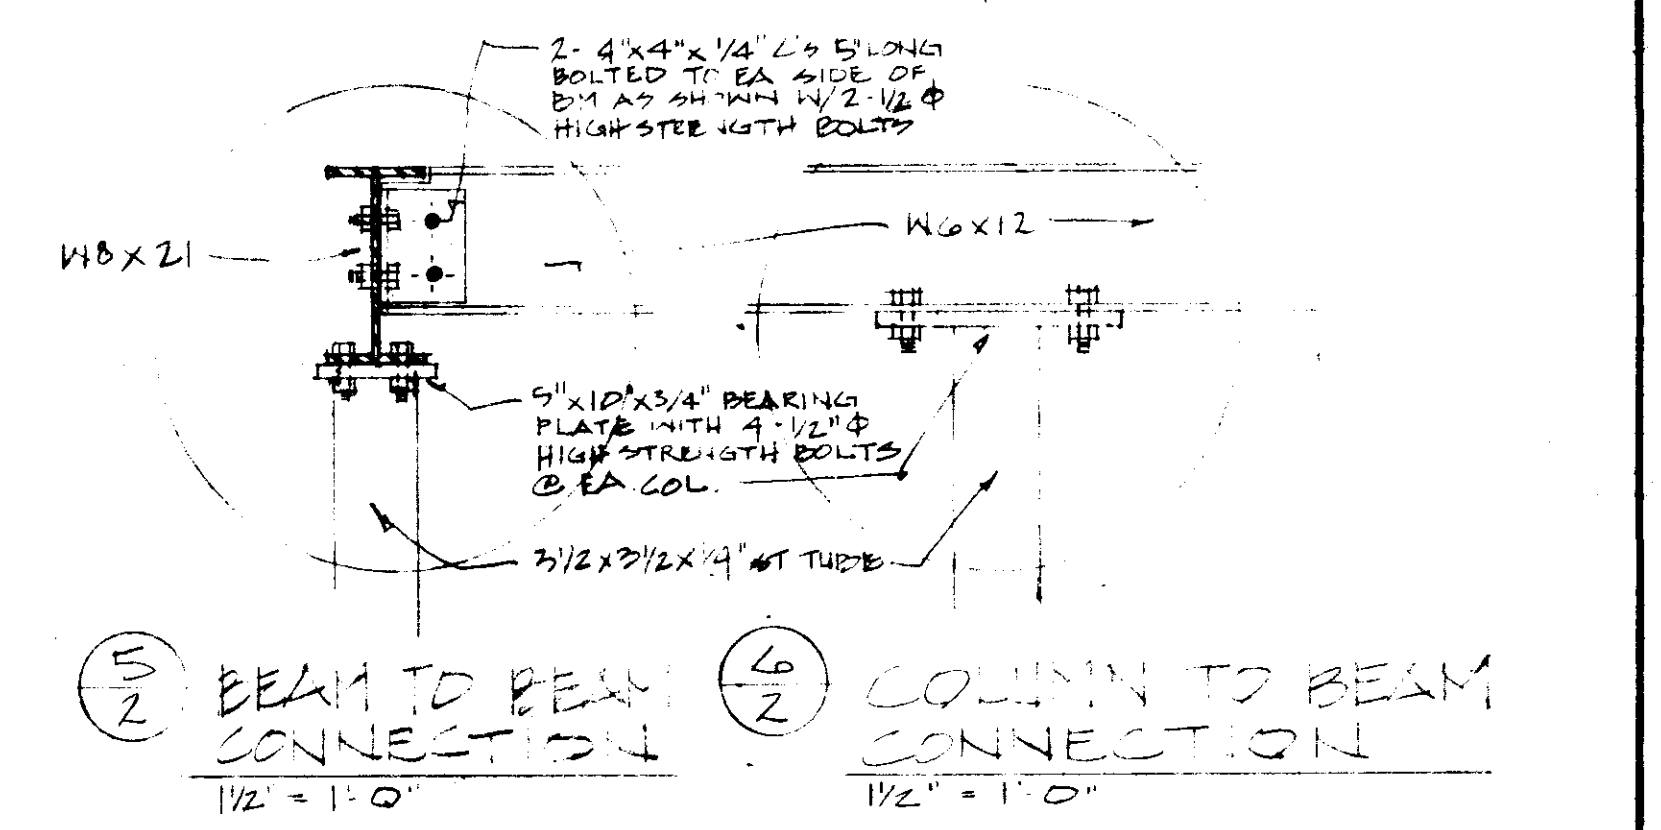 2- 4"x4"x 1/4" L's 5" LONG
BOLTED TO EA SIDE OF
BM AS SHOWN W/ 2-1/2 Φ
HIGH STRENGTH BOLTS
W8X21
W6X12
5"x10"x3/4" BEARING
PLATE WITH 4-1/2"Φ
HIGH STRENGTH BOLTS
@ EA. COL.
3 1/2 x 3 1/2 x 1/4" ST TUBE
5
2
BEAM TO BEAM
CONNECTION
1 1/2" = 1'-0"
6
2
COLUMN TO BEAM
CONNECTION
1 1/2" = 1'-0"